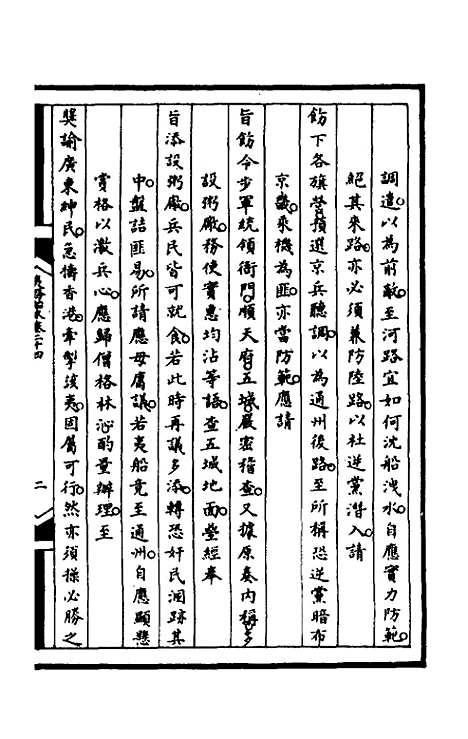 調遣以為前敵至河路宜如何沈船洩水自應實力防範
絕其來路亦必須兼防陸路以杜逆黨潛入請
飭下各旗營預選京兵聽調以為通州後路至所稱恐逆黨暗布
京畿乘機為匪亦當防範應請
旨飭令步軍統領衙門順天府五城嚴密稽查又據原奏內稱多
設粥廠務使實惠均沾等語查五城地面疊經奉
旨添設粥廠兵民皆可就食若此時再議多添轉恐奸民溷跡其
中盤詰匪易所請應毋庸議若夷船竟至通州自應顯懸
賞格以激兵心應歸僧格林沁酌量辦理至
奬諭廣東紳民急擣香港牽掣該夷固屬可行然亦須操必勝之
二